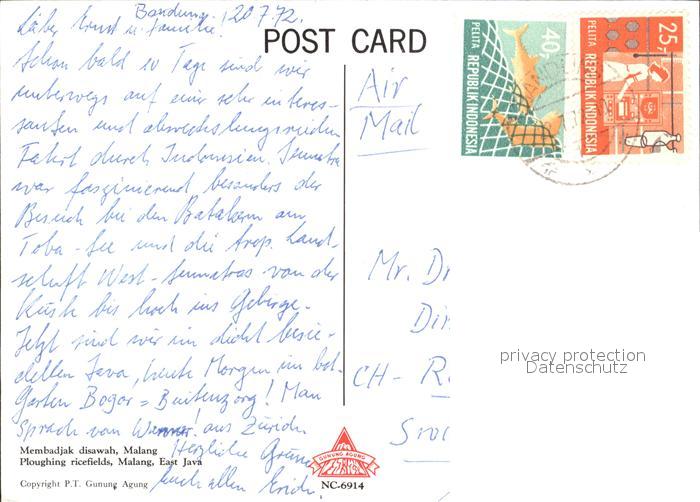 Bandung, 20.7.72.
Lieber Ernst u. Familie.
Schon bald 10 Tage sind wir
unterwegs auf einer sehr interes-
santen und abwechslungsreichen
Fahrt durch Indonesien. Sumatra
war faszinierend besonders der
Besuch bei den Batakern am
Toba-See und die trop. Land-
schaft West-Sumatras von der
Küste bis hoch ins Gebirge.
Jetzt sind wir im dicht besie-
delten Java, heute Morgen im bot.
Garten Bogor = Buitenzorg! Man
sprach von aus Zürich
Herzliche Grüsse
euch allen Erich
Membadjak disawah, Malang
Ploughing ricefields, Malang, East Java
Copyright P.T. Gunung Agung
POST CARD
Air
Mail
40
PELITA
REPUBLIK INDONESIA
25
PELITA
REPUBLIK INDONESIA
Mr. Dr
Dir
CH - R
privacy protection
Datenschutz
GUNUNG AGUNG
NC-6914